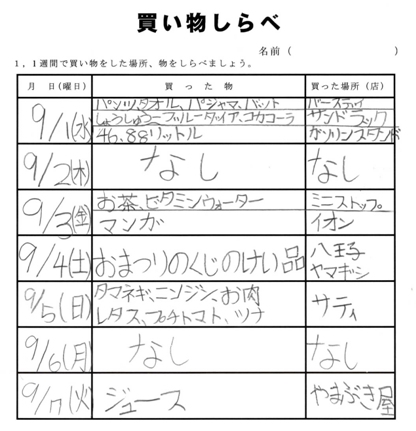 買い物しらべ
名前（ ）
1，1週間で買い物をした場所、物をしらべましょう。
月 日（曜日） 買 っ た 物 買った場所（店）
9/1(水) パンツ、タオル、パジャマ、バット バースデイ
しょうしゅうフルータツイア、コカコーラ サンドラック
46,88リットル ガソリンスタンド
9/2(木) なし なし
9/3(金) お茶、ビタミンウォーター ミニストップ
マンガ イオン
9/4(土) おまつりのくじのけい品 八王子
ヤマギシ
9/5(日) タマネギ、ニンジン、お肉 サティ
レタス、プチトマト、ツナ
9/6(月) なし なし
9/7(火) ジュース やまぶき屋